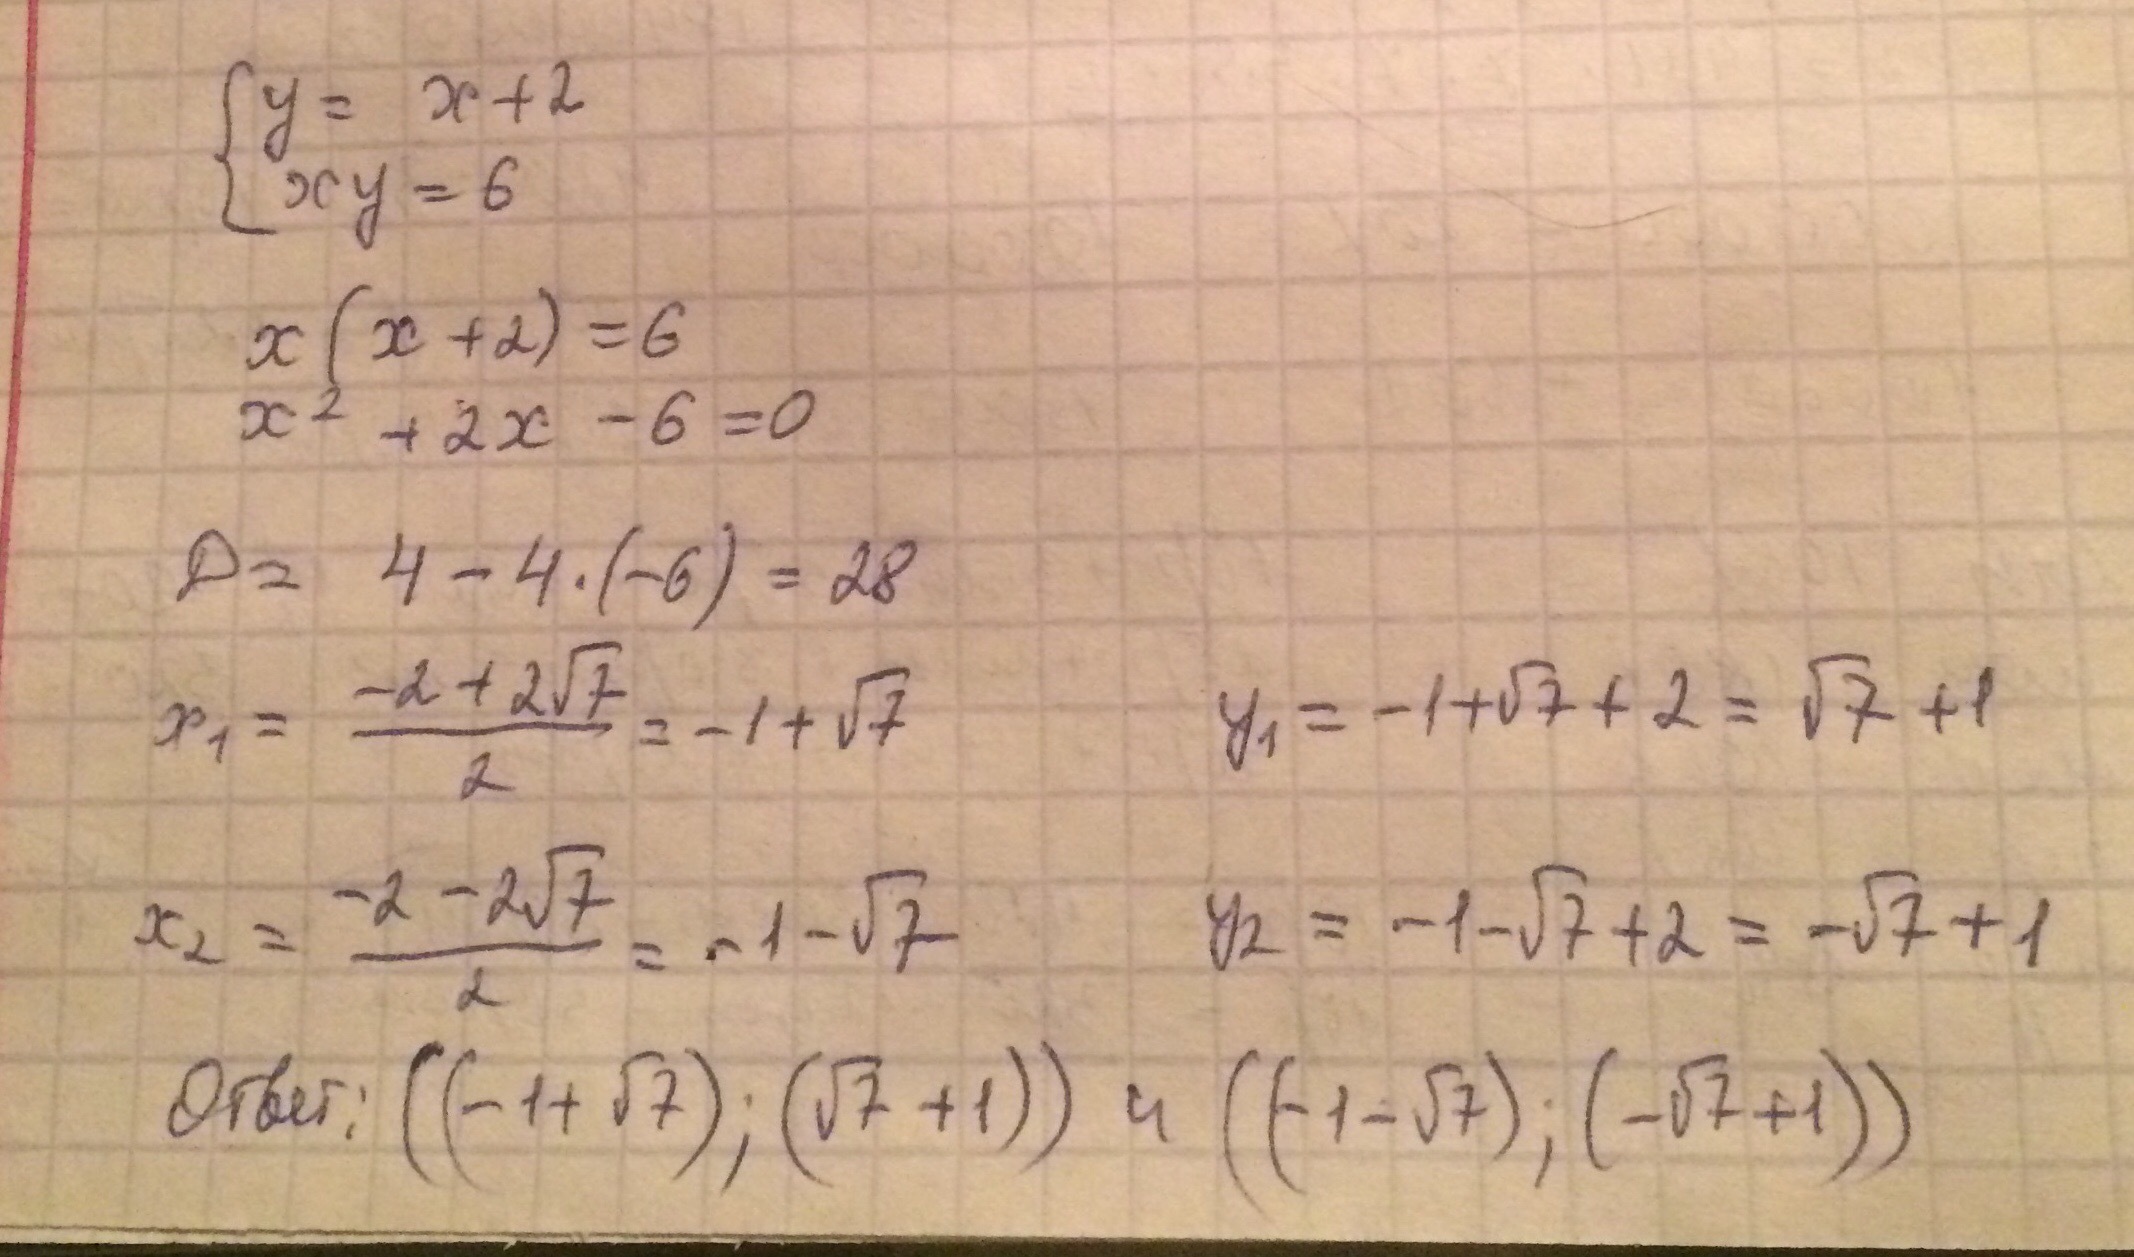 { y = x + 2
xy = 6
x(x + 2) = 6
x² + 2x - 6 = 0
D = 4 - 4·(-6) = 28
x₁ = (-2 + 2√7)/2 = -1 + √7    y₁ = -1 + √7 + 2 = √7 + 1
x₂ = (-2 - 2√7)/2 = -1 - √7    y₂ = -1 - √7 + 2 = -√7 + 1
Ответ: ((-1 + √7); (√7 + 1)) и ((-1 - √7); (-√7 + 1))